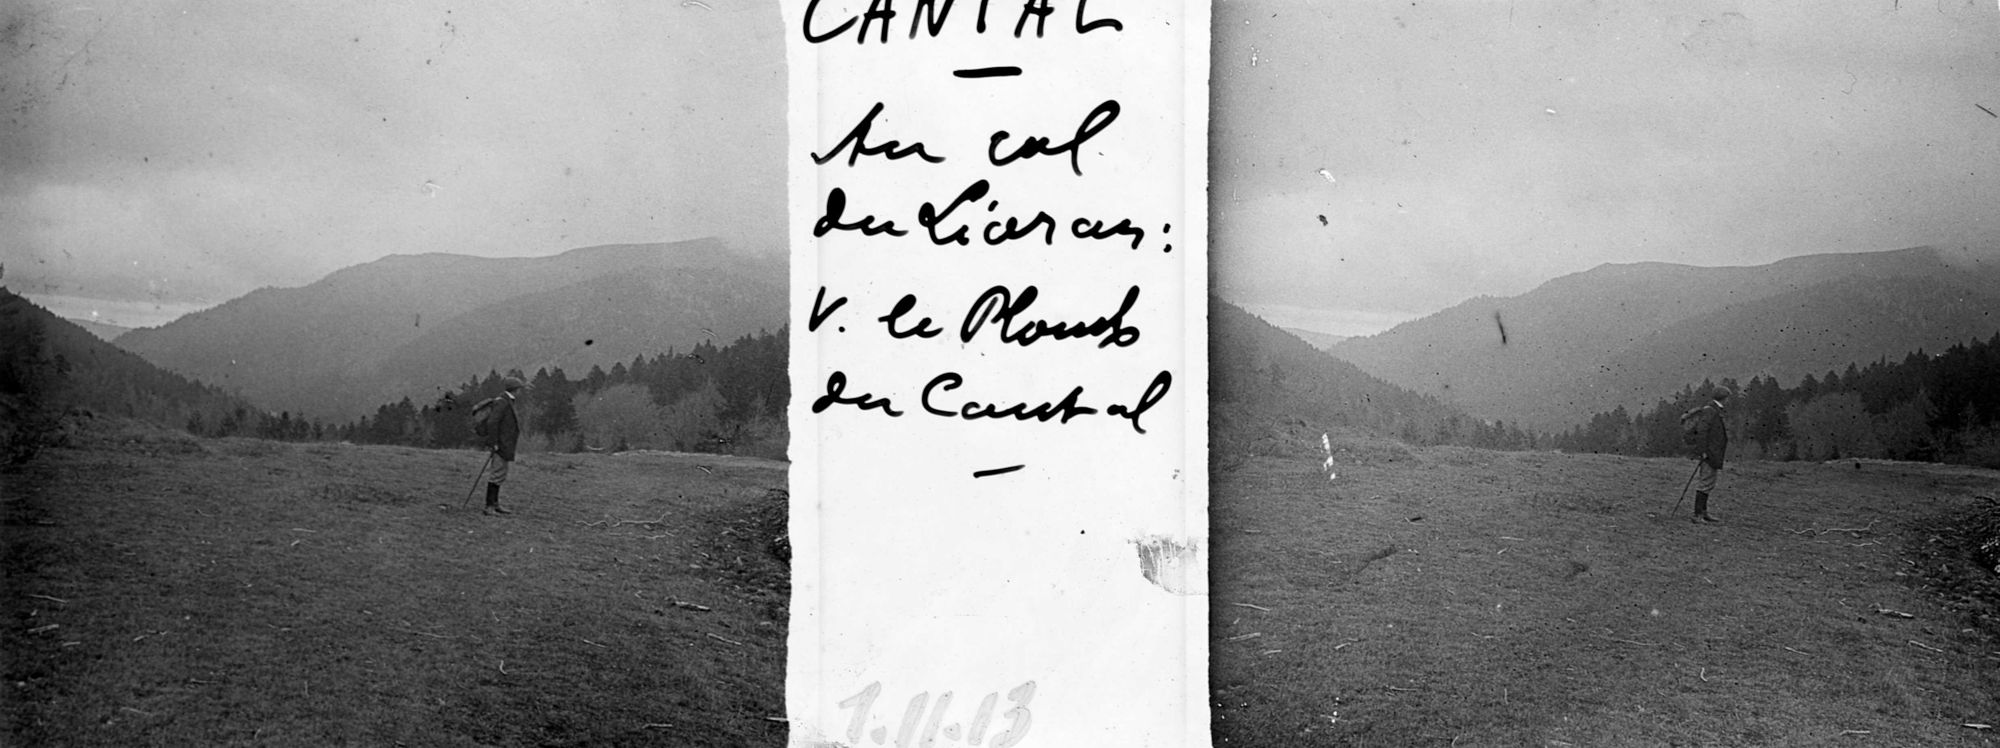 CANTAL
Au col
du Lioran:
V. le Plomb
du Cantal
1.11.13